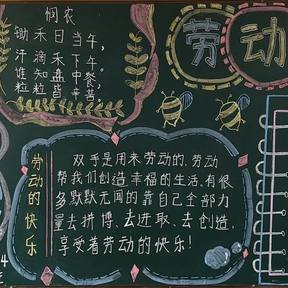 悯农
锄禾日当午,
汗滴禾下午。
谁知盘中餐
粒粒皆辛苦
劳动
劳动的快乐
双手是用来劳动的,劳动
帮我们创造幸福的生活.有很
多默默无闻的靠自己全部力
量去拼博、去进取、去创造,
享受着劳动的快乐!